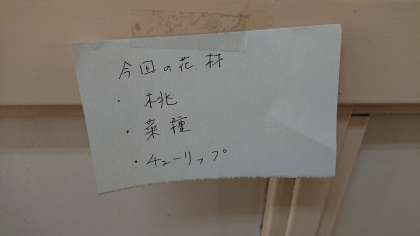 今回の花材
・桃
・菜種
・チューリップ